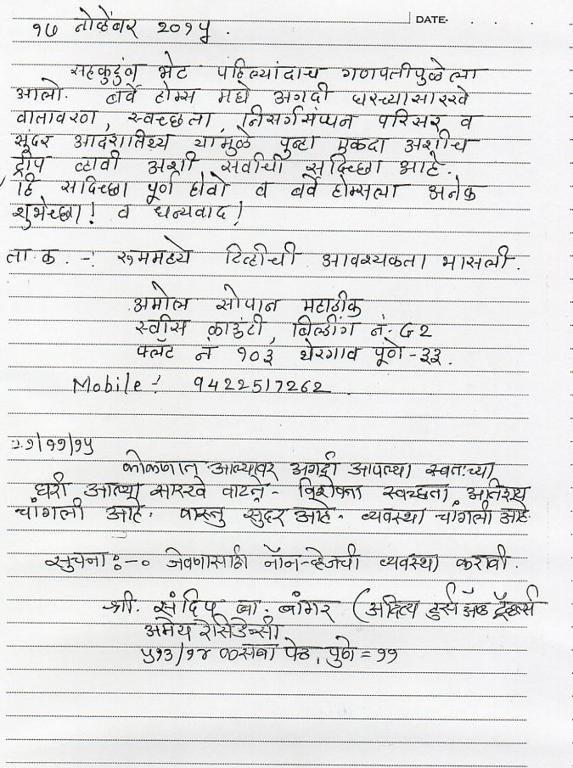 DATE
१७ नोव्हेंबर २०१५.
सहकुटुंब भेट पहिल्यांदाच गणपतीपुळेला
आलो. बर्वे होम्स मधे अगदी घरच्यासारखे
वातावरण, स्वच्छता, निसर्गसंपन्न परिसर व
सुंदर आदरातिथ्य यांमुळे पुन्हा एकदा अशीच
ट्रीप व्हावी अशी सर्वांची सदिच्छा आहे.
हि सदिच्छा पूर्ण होवो व बर्वे होम्सला अनेक
शुभेच्छा! व धन्यवाद!
ता. क. -: रुममध्ये टिव्हीची आवश्यकता भासली.
अमोल सोपान महाडीक
स्वीस काउंटी, बिल्डींग नं. G2
फ्लॅट नं १०३ थेरगाव पूणे -३३.
Mobile :- 9422517262
२१/११/१५
कोकणात आल्यावर अगदी आपल्या स्वतःच्या
घरी आल्या सारखे वाटले - विशेषतः स्वच्छता अतिशय
चांगली आहे. वास्तु सुंदर आहे. व्यवस्था चांगली आहे.
सुचना :-० जेवणासाठी नॉन-व्हेजची व्यवस्था करावी.
श्री. संदिप बा. बांगर (आदित्य टुर्स अँड ट्रॅव्हर्ल्स
अमेय रेसिडेन्सी
५१३/१४ कसबा पेठ, पुणे = ११